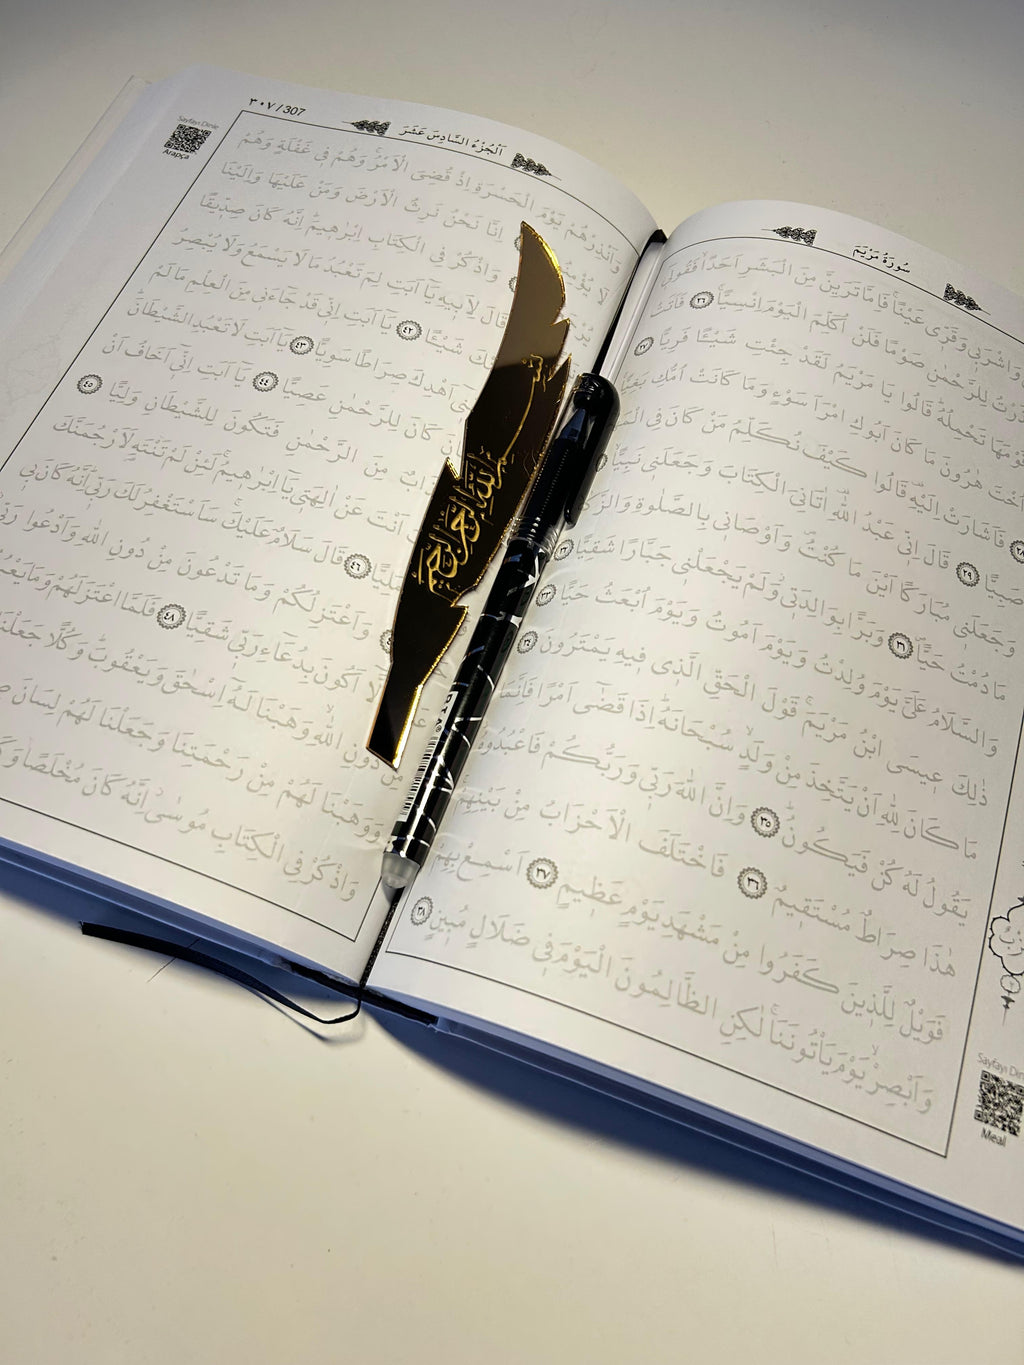 سُورَةُ مَرْيَمَ
وَاشْرَبِي وَقَرِّي عَيْنًا فَاِمَّا تَرَيِنَّ مِنَ الْبَشَرِ اَحَدًا فَقُولِي
نَذَرْتُ لِلرَّحْمٰنِ صَوْمًا فَلَنْ اُكَلِّمَ الْيَوْمَ اِنْسِيًّا ٢٦ فَاَتَتْ
قَوْمَهَا تَحْمِلُهُ قَالُوا يَا مَرْيَمُ لَقَدْ جِئْتِ شَيْئًا فَرِيًّا ٢٧
اُخْتَ هٰرُونَ مَا كَانَ اَبُوكِ امْرَاَ سَوْءٍ وَمَا كَانَتْ اُمُّكِ بَغِيًّا
٢٨ فَاَشَارَتْ اِلَيْهِ قَالُوا كَيْفَ نُكَلِّمُ مَنْ كَانَ فِي
صَبِيًّا ٢٩ قَالَ اِنِّي عَبْدُ اللّٰهِ اٰتَانِيَ الْكِتَابَ وَجَعَلَنِي نَبِيًّا
وَجَعَلَنِي مُبَارَكًا اَيْنَ مَا كُنْتُ وَاَوْصَانِي بِالصَّلٰوةِ
مَا دُمْتُ حَيًّا ٣١ وَبَرًّا بِوَالِدَتِي وَلَمْ يَجْعَلْنِي جَبَّارًا شَقِيًّا ٣٢
وَالسَّلَامُ عَلَيَّ يَوْمَ وُلِدْتُ وَيَوْمَ اَمُوتُ وَيَوْمَ اُبْعَثُ حَيًّا ٣٣
ذٰلِكَ عِيسَى ابْنُ مَرْيَمَ قَوْلَ الْحَقِّ الَّذِي فِيهِ يَمْتَرُونَ ٣٤
مَا كَانَ لِلّٰهِ اَنْ يَتَّخِذَ مِنْ وَلَدٍ سُبْحَانَهُ اِذَا قَضٰٓى اَمْرًا فَاِنَّمَا
يَقُولُ لَهُ كُنْ فَيَكُونُ ٣٥ وَاِنَّ اللّٰهَ رَبِّي وَرَبُّكُمْ فَاعْبُدُوهُ
هٰذَا صِرَاطٌ مُسْتَقِيمٌ ٣٦ فَاخْتَلَفَ الْاَحْزَابُ مِنْ بَيْنِهِمْ
فَوَيْلٌ لِلَّذِينَ كَفَرُوا مِنْ مَشْهَدِ يَوْمٍ عَظِيمٍ ٣٧ اَسْمِعْ بِهِمْ
وَاَبْصِرْ يَوْمَ يَأْتُونَنَا لٰكِنِ الظَّالِمُونَ الْيَوْمَ فِي ضَلَالٍ مُبِينٍ ٣٨
Meal
٣٠٧ / 307
اَلْجُزْءُ السَّادِسَ عَشَرَ
Sayfayı Dinle
Arapça
وَاَنْذِرْهُمْ يَوْمَ الْحَسْرَةِ اِذْ قُضِيَ الْاَمْرُ وَهُمْ فِي غَفْلَةٍ وَهُمْ
لَا اِنَّا نَحْنُ نَرِثُ الْاَرْضَ وَمَنْ عَلَيْهَا وَاِلَيْنَا
وَاذْكُرْ فِي الْكِتَابِ اِبْرٰهِيمَ اِنَّهُ كَانَ صِدِّيقًا
قَالَ لِاَبِيهِ يَا اَبَتِ لِمَ تَعْبُدُ مَا لَا يَسْمَعُ وَلَا يُبْصِرُ
شَيْئًا ٤٢ يَا اَبَتِ اِنِّي قَدْ جَاءَنِي مِنَ الْعِلْمِ مَا لَمْ
اَهْدِكَ صِرَاطًا سَوِيًّا ٤٣ يَا اَبَتِ لَا تَعْبُدِ الشَّيْطَانَ
كَانَ لِلرَّحْمٰنِ عَصِيًّا ٤٤ يَا اَبَتِ اِنِّي اَخَافُ اَنْ
مِنَ الرَّحْمٰنِ فَتَكُونَ لِلشَّيْطَانِ وَلِيًّا ٤٥
اَنْتَ عَنْ اٰلِهَتِي يَا اِبْرٰهِيمُ لَئِنْ لَمْ تَنْتَهِ لَاَرْجُمَنَّكَ
٤٦ قَالَ سَلَامٌ عَلَيْكَ سَاَسْتَغْفِرُ لَكَ رَبِّي اِنَّهُ كَانَ بِي
وَاَعْتَزِلُكُمْ وَمَا تَدْعُونَ مِنْ دُونِ اللّٰهِ وَاَدْعُوا رَبِّي
اَكُونَ بِدُعَاءِ رَبِّي شَقِيًّا ٤٨ فَلَمَّا اعْتَزَلَهُمْ وَمَا
مِنْ دُونِ اللّٰهِ وَهَبْنَا لَهُ اِسْحٰقَ وَيَعْقُوبَ وَكُلًّا جَعَلْنَا
وَوَهَبْنَا لَهُمْ مِنْ رَحْمَتِنَا وَجَعَلْنَا لَهُمْ لِسَانَ
وَاذْكُرْ فِي الْكِتَابِ مُوسٰى اِنَّهُ كَانَ مُخْلَصًا
بسم الله الرحمن الرحيم